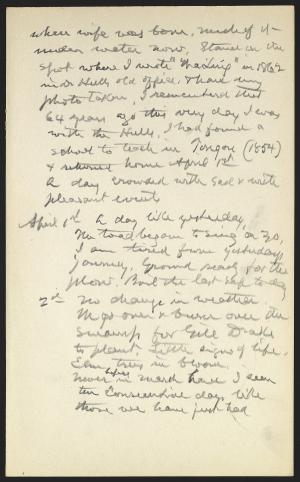 where wife was born, much of it
under water now. Stand on the
spot where I wrote "Waiting" in 1862
in Dr Hulls old office. & have my
photo taken, I remembered that
64 years ago this very day I was
with the Hulls, I had found a
school to teach in Tongore (1854)
& returned home April 1st
A day crowded with sad & with
pleasant events
April 1st A day like yesterday
No toad began to sing or go,
I am tired from yesterdays
journey. Ground ready for the
plow. Boil the last sap to day
2nd No change in weather.
over & over the
swamp for Gill Drake
to plant. Little signs of life.
Elm trees in bloom.
Never before in March have I seen
ten Consecutive days like
those we have just had